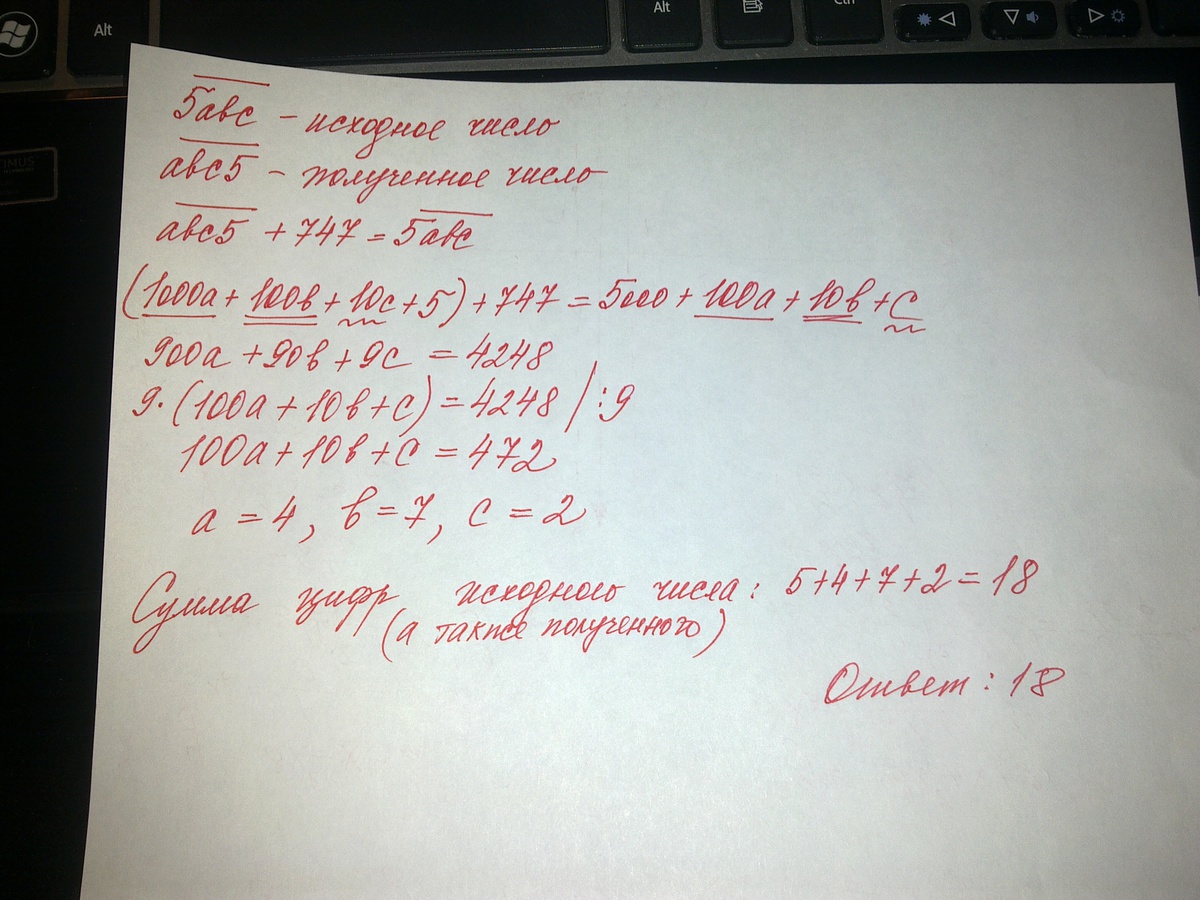 Alt
Alt
Ctrl
TIMUS
5авс – исходное число
авс5 – полученное число
авс5 + 747 = 5авс
(1000а + 100в + 10с + 5) + 747 = 5000 + 100а + 10в + с
900а + 90в + 9с = 4248
9·(100а + 10в + с) = 4248 / :9
100а + 10в + с = 472
а = 4, в = 7, с = 2
Сумма цифр исходного числа: 5+4+7+2=18
(а также полученного)
Ответ: 18